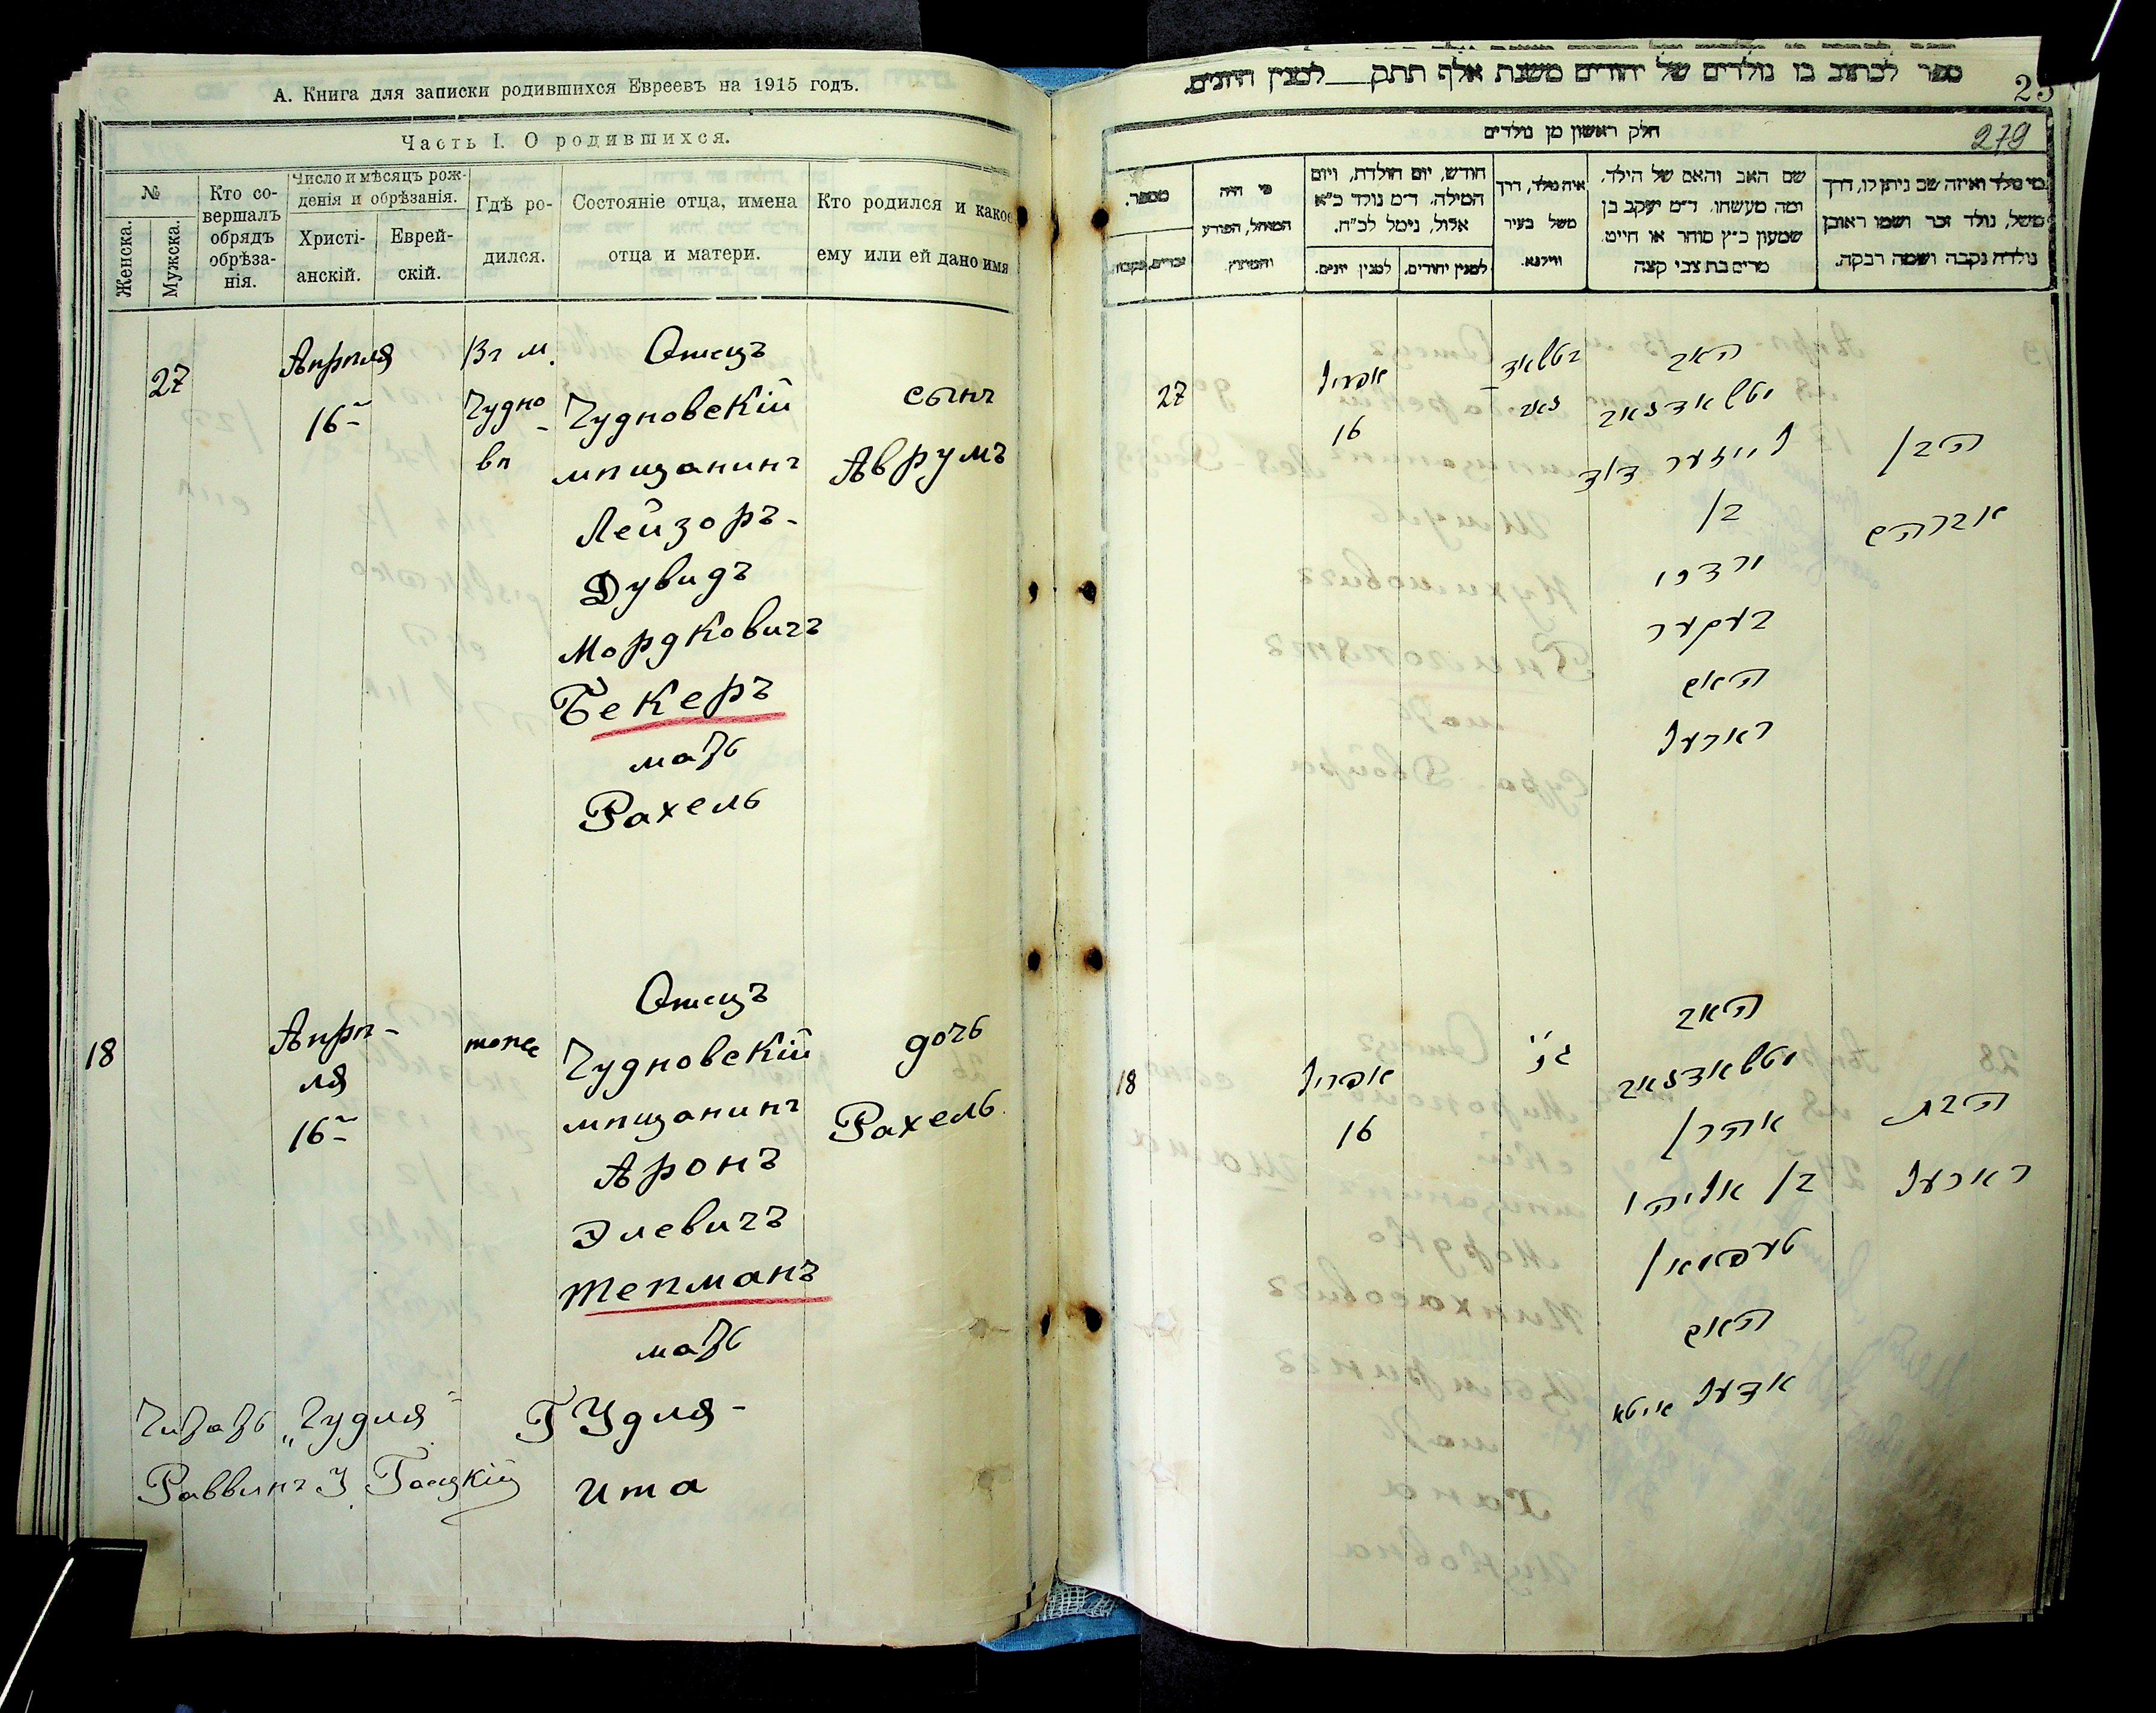 А. Книга для записки родившихся Евреевъ на 1915 годъ.
Часть I. О родившихся.
№
Женска.
Мужска.
Кто со-
вершалъ
обрядъ
обрѣза-
нія.
Число и мѣсяцъ рож-
денія и обрѣзанія.
Христі-
анскій.
Еврей-
скій.
Гдѣ ро-
дился.
Состояніе отца, имена
отца и матери.
Кто родился и какое
ему или ей дано имя
27
Апрѣля
16
Въ м.
Чудно-
вѣ
Отецъ
Чудновскій
мѣщанинъ
Лейзоръ-
Дувидъ
Мордковичъ
Бекеръ
мать
Рахель
сынъ
Аврумъ
18
Апрѣ-
ля
16
тоже
Отецъ
Чудновскій
мѣщанинъ
Аронъ
Элевичъ
Тепманъ
мать
Гудля-
Ита
дочь
Рахель
Читать „Гудля"
Раввинъ
ספר לכתוב בו נולדים של יהודים משנת אלף תתק__ למנין היונים.
25
279
חלק ראשון מן נולדים
מספר.
זכרים.
נקבות.
מי היה
המוהל, הפורע
והמוצץ.
חודש, יום הולדת, ויום
המילה. ד״מ נולד כ״א
אלול, נימל לכ״ח.
למנין יונים.
למנין יהודים.
איה נולד, דרך
משל בעיר
ווילנא.
שם האב והאם של הילד.
ומה מעשהו. ד״מ יעקב בן
שמעון כ״ץ סוחר או חייט.
מרים בת צבי קצה
מי נולד ואיזה שם ניתן לו, דרך
משל, נולד זכר ושמו ראובן
נולדה נקבה ושמה רבקה.
27
אפריל
16
האב
לייזער דוד
בן
מרדכי
בעקער
האם
ראכעל
הבן
אברהם
18
אפריל
16
האב
אהרן
בן אליהו
טעפמאן
האם
איטא
הבת
ראכעל